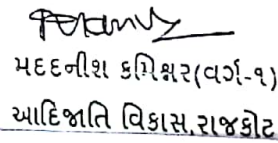 મદદનીશ કમિશ્નર(વર્ગ-૧)
આદિજાતિ વિકાસ,રાજકોટ